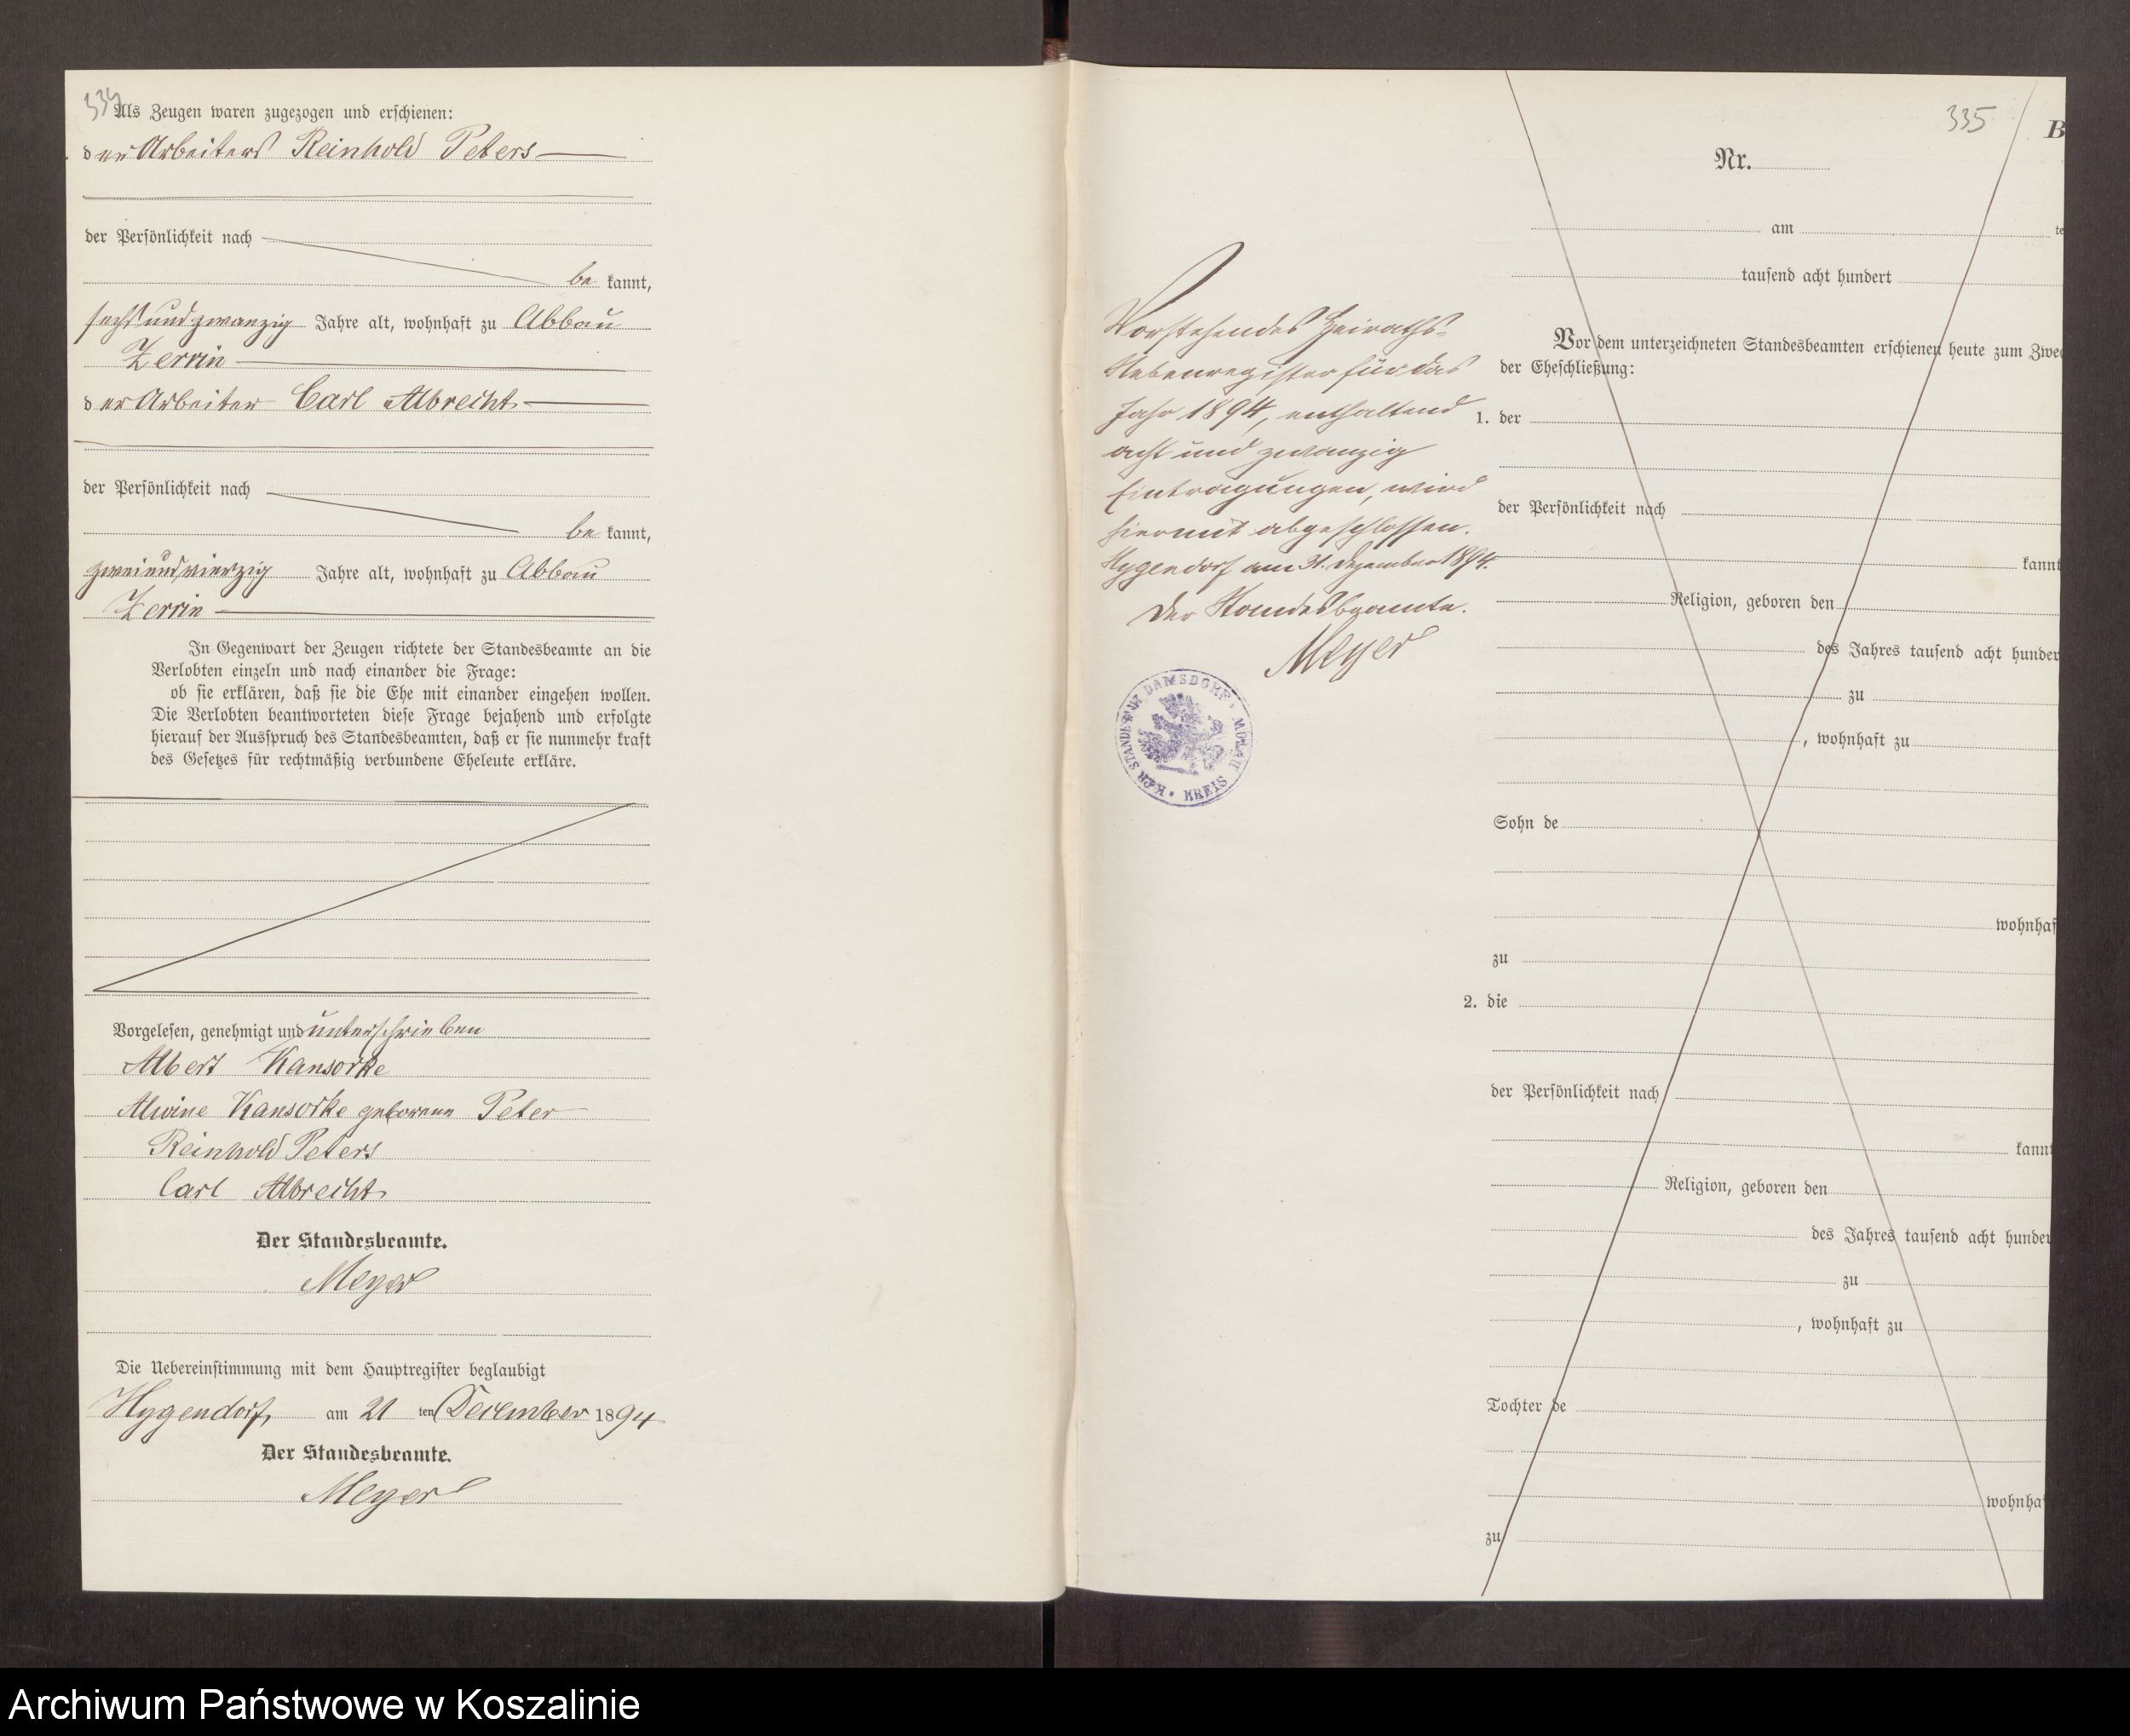 334
Als Zeugen waren zugezogen und erschienen:
der Arbeiter Reinhold Peters
der Persönlichkeit nach
be kannt,
sechs und zwanzig Jahre alt, wohnhaft zu Abbau
Zerrin
der Arbeiter Carl Albrecht
der Persönlichkeit nach
be kannt,
zwei und vierzig Jahre alt, wohnhaft zu Abbau
Zerrin
In Gegenwart der Zeugen richtete der Standesbeamte an die
Verlobten einzeln und nach einander die Frage:
ob sie erklären, daß sie die Ehe mit einander eingehen wollen.
Die Verlobten beantworteten diese Frage bejahend und erfolgte
hierauf der Ausspruch des Standesbeamten, daß er sie nunmehr kraft
des Gesetzes für rechtmäßig verbundene Eheleute erkläre.
Vorgelesen, genehmigt und unterschrieben
Albert Kansorke
Alwine Kansorke geborene Peter
Reinhold Peters
Carl Albrecht
Der Standesbeamte.
Meyer
Die Uebereinstimmung mit dem Hauptregister beglaubigt
Hygendorf, am 21 ten December 1894
Der Standesbeamte.
Meyer
Vorstehendes Heiraths-
Nebenregister für das
Jahr 1894, enthaltend
acht und zwanzig
Eintragungen, wird
hiermit abgeschlossen.
Hygendorf am 31. Dezember 1894.
Der Standesbeamte.
Meyer
DAMSDORF KREIS
335
B
Nr.
am te
tausend acht hundert
Vor dem unterzeichneten Standesbeamten erschienen heute zum Zwec
der Eheschließung:
1. der
der Persönlichkeit nach
kannt
Religion, geboren den
des Jahres tausend acht hunder
zu
, wohnhaft zu
Sohn de
wohnhaf
zu
2. die
der Persönlichkeit nach
kannt
Religion, geboren den
des Jahres tausend acht hunder
zu
, wohnhaft zu
Tochter de
wohnha
zu
Archiwum Państwowe w Koszalinie